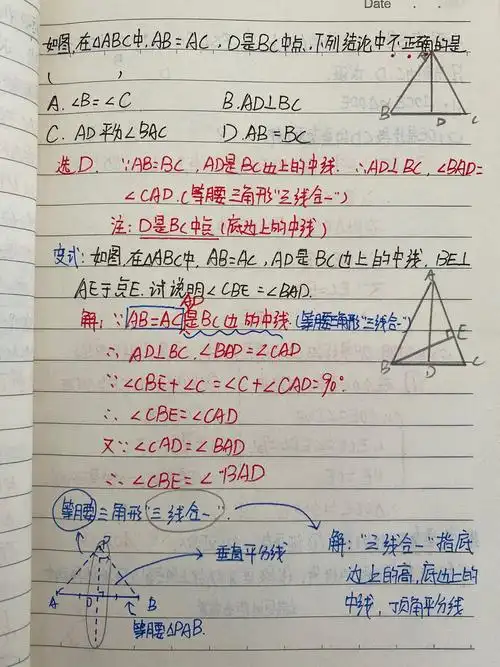 Date
如图,在△ABC中,AB=AC,D是BC中点,下列结论中不正确的是
(        )
A. ∠B=∠C    B. AD⊥BC
C. AD平分∠BAC    D. AB=BC
B D C
选D. ∵AB=BC, AD是BC边上的中线. ∴AD⊥BC, ∠BAD=
∠CAD.(等腰三角形"三线合一")
注: D是BC中点(底边上的中线)
变式: 如图,在△ABC中, AB=AC, AD是BC边上的中线, BE⊥
AE于点E. 试说明∠CBE=∠BAD.
A
E
B D C
AD
解: ∵ AB=AC 是BC边的中线.(等腰三角形"三线合一")
∴ AD⊥BC. ∠BAD=∠CAD
∵ ∠CBE+∠C=∠C+∠CAD=90°.
∴ ∠CBE=∠CAD
又∵ ∠CAD=∠BAD
∴ ∠CBE=∠BAD
等腰三角形"三线合一".
P
垂直平分线
A D B
等腰△PAB.
解: "三线合一"指底
边上的高,底边上的
中线,顶角平分线